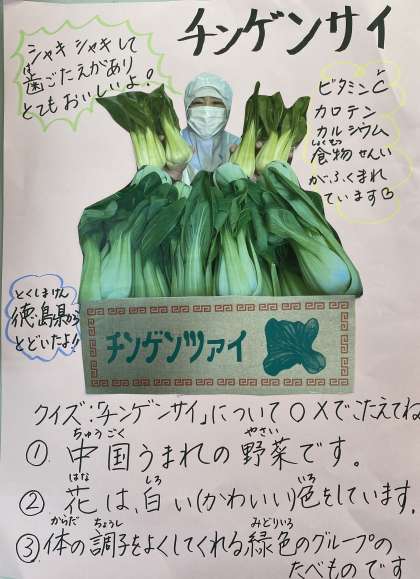 チンゲンサイ
シャキシャキして
は
歯ごたえがあり
とてもおいしいよ！
ビタミンC
カロテン
カルシウム
しょくもつ
食物せんい
がふくまれ
ています
とくしまけん
徳島県から
とどいたよ!!
チンゲンツァイ
クイズ:「チンゲンサイ」について○×でこたえてね
ちゅうごく やさい
① 中国うまれの野菜です。
はな しろ いろ
② 花は、白い(かわいい)色をしています。
からだ ちょうし みどりいろ
③ 体の調子をよくしてくれる緑色のグループの
たべものです